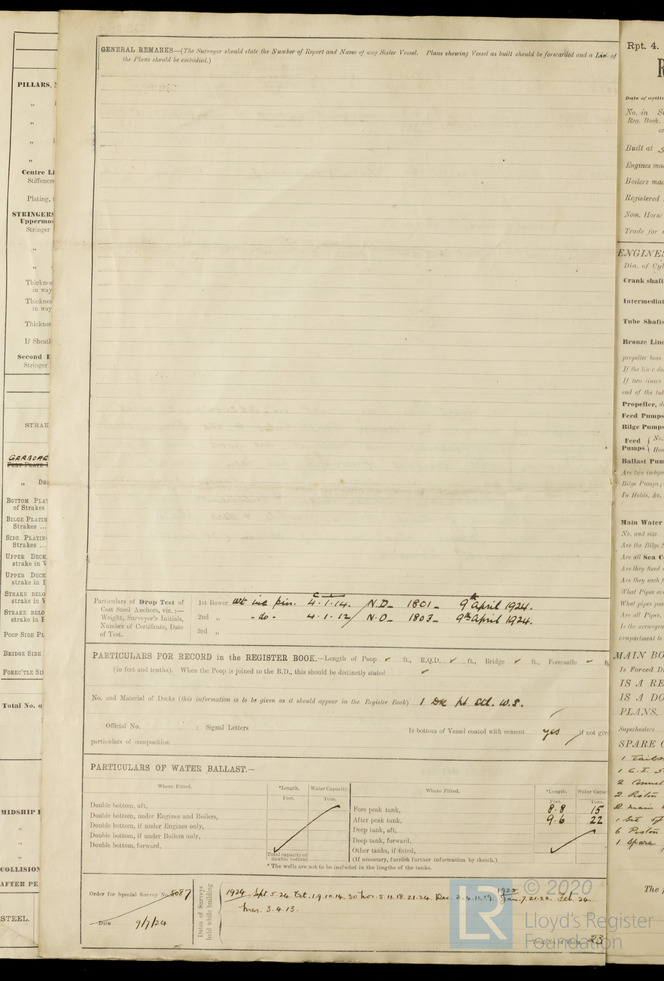 GENERAL REMARKS—(The Surveyor should state the Number of Report and Name of any Sister Vessel. Plans showing Vessel as built should be forwarded and a List of
the Plans should be embodied.)
PILLARS,
Centre Li
Stiffene
Plating,
STRINGERS
Uppermo
Stringer
Thickne
in way
Thickne
in way
Thickne
If Sheat
Second D
Stringer
STRAK
GARBOAR
BOTTOM PLA
of Strakes
BILGE PLATIN
Strakes ...
SIDE PLATING
Strakes ...
UPPER DECK
strake in W
UPPER DECK
strake in B
STRAKE BELO
STRAKE BELO
POOP SIDE PL
BRIDGE SIDE
FORECTLE SI
Total No. o
MIDSHIP
COLLISION
AFTER PE
STEEL.
Particulars of Drop Test of
Cast Steel Anchors, viz.:—
Weight, Surveyor's Initials,
Number of Certificate, Date
of Test.
1st Bower wt inc pin. 4.1.14. N.D. 1801 9th April 1924.
2nd „ - do - 4.1.12 N.D. 1803 9th April 1924.
3rd „
PARTICULARS FOR RECORD in the REGISTER BOOK.—Length of Poop ft., R.Q.D. ft., Bridge ft., Forecastle ft.
(in feet and tenths). When the Poop is joined to the B.D., this should be distinctly stated
No. and Material of Decks (this information is to be given as it should appear in the Register Book) 1 Dk pt Stl. W.S.
Official No. ; Signal Letters Is bottom of Vessel coated with cement yes if not give
particulars of composition
PARTICULARS OF WATER BALLAST.—
Where Fitted. *Length. Water Capacity Where Fitted. *Length. Water Capac
Feet. Tons. Feet. Tons.
Double bottom, aft, Fore peak tank, 8.8 15
Double bottom, under Engines and Boilers, After peak tank, 9.6 22
Double bottom, if under Engines only, Deep tank, aft,
Double bottom, if under Boilers only, Deep tank, forward,
Double bottom, forward, Other tanks, if fitted,
Total capacity of double bottom (If necessary, furnish further information by sketch.)
* The wells are not to be included in the lengths of the tanks.
Order for Special Survey No. 5087
Date 9/9/24
Dates of Surveys held while building
1924 Sept. 5.24. Oct. 1.9.10.14.30 Nov. 5.11.18.21.24. Dec. 2.4.11.19. 1925 Jan. 7.21.20. Feb. 24.
Mar. 3.4.13.
23
Rpt. 4.
No. in
Reg. Book.
Built at
Engines ma
Boilers mad
Registered
Nom. Horse
Trade for
ENGINE
Dia. of Cyl
Crank shaft
Intermediat
Tube Shaft
Bronze Line
propeller boss
If the liner do
If two liners
end of the tub
Propeller,
Feed Pumps
Bilge Pumps
Feed
Pumps
Ballast Pum
Are two indep
Bilge Pumps
In Holds, &c.
Main Water
No. and size
Are the Bilge
Are all Sea C
Are they fixed
Are they each
What Pipes
What pipes pas
Are all Pipes,
Is the screwsh
compartment to
MAIN BO
Is Forced D
IS A RE
IS A DO
PLANS.
Superheaters
SPARE G
The
© 2020
Lloyd's Register
Foundation
LR